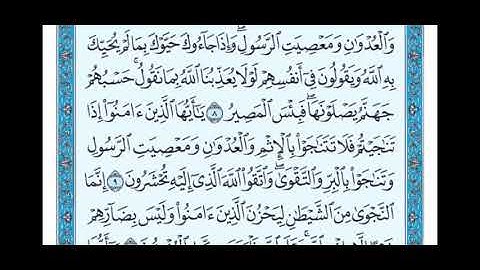 وَٱلْعُدْوَٰنِ وَمَعْصِيَتِ ٱلرَّسُولِۖ وَإِذَا جَآءُوكَ حَيَّوْكَ بِمَا لَمْ يُحَيِّكَ
بِهِ ٱللَّهُ وَيَقُولُونَ فِىٓ أَنفُسِهِمْ لَوْلَا يُعَذِّبُنَا ٱللَّهُ بِمَا نَقُولُۚ حَسْبُهُمْ
جَهَنَّمُ يَصْلَوْنَهَاۖ فَبِئْسَ ٱلْمَصِيرُ ٨ يَـٰٓأَيُّهَا ٱلَّذِينَ ءَامَنُوٓا۟ إِذَا
تَنَـٰجَيْتُمْ فَلَا تَتَنَـٰجَوْا۟ بِٱلْإِثْمِ وَٱلْعُدْوَٰنِ وَمَعْصِيَتِ ٱلرَّسُولِ
وَتَنَـٰجَوْا۟ بِٱلْبِرِّ وَٱلتَّقْوَىٰۖ وَٱتَّقُوا۟ ٱللَّهَ ٱلَّذِىٓ إِلَيْهِ تُحْشَرُونَ ٩ إِنَّمَا
ٱلنَّجْوَىٰ مِنَ ٱلشَّيْطَـٰنِ لِيَحْزُنَ ٱلَّذِينَ ءَامَنُوا۟ وَلَيْسَ بِضَآرِّهِمْ